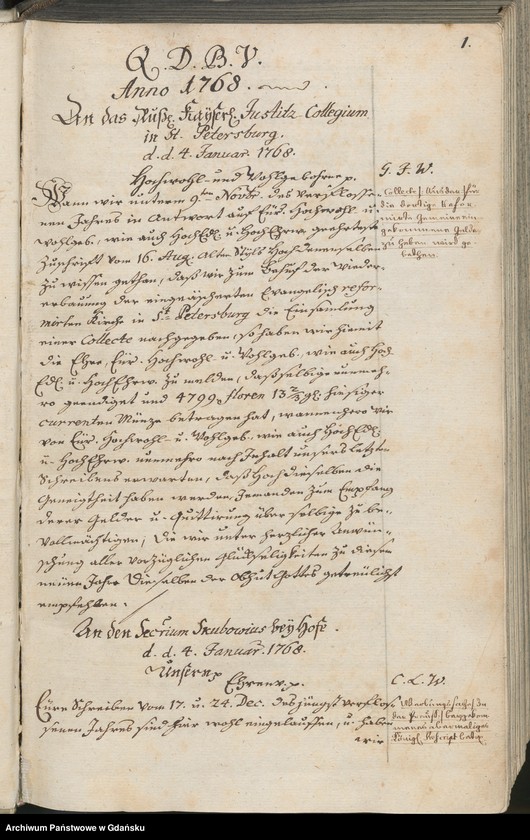 1.
Q. D. B. V.
Anno 1768.
An das Ruße Kayserl. Justitz Collegium
in St. Petersburg.
d. d. 4. Januar. 1768.
Hochwohl- und Wohlgebohrne p.
G. F. W.
Wann wir unterm 9ten Novbr. des verflosse-
nen Jahres in Antwort auf Eur. Hochwohl- u.
Wohlgeb. wie auch HochEdl. u. HochEhrw. geehrteste
Zuschrift vom 16. Aug. alten Styls Hochdenenselben
zu wissen gethan, daß wir zum Behuf der Wieder-
erbauung der eingeäscherten Evangelisch refor-
mirten Kirche in St. Petersburg die Einsamlung
einer Collecte nachgegeben, so haben wir hiemit
die Ehre, Eur. Hochwohl- u. Wohlgeb. wie auch Hoch
Edl. u. HochEhrw. zu melden, daß selbige nunmeh-
ro geendiget und 4799 floren 13 2/3 gl. hiesiger
currenten Müntze betragen hat, wannenhero wir
von Eur. Hochwohl- u. Wohlgeb. wie auch HochEdl.
u. HochEhrw. nunmehro nach Inhalt unsers letzten
Schreibens erwarten, daß Hochdieselben die
Geneigtheit haben werden, jemanden zum Empfang
derer Gelder u. Quittirung über selbige zu be-
vollmächtigen; Die wir unter herzlicher Anwün-
schung aller vorzüglichen Glückseligkeiten zu diesem
neuen Jahre Dieselben der Obhut Gottes getreulichst
empfehlen.
Collecte
die dortige Refor
mirte Gemeine ein
gekommene Gelde
zu heben wird ge
bethen.
An den Secrium Skubowius bey Hofe.
d. d. 4. Januar. 1768.
Unsern p
Ehrenv. p.
C. L. W.
Eure Schreiben vom 17. u. 24. Dec. des jüngst verflos-
senen Jahres sind hier wohl eingelauffen, u. haben
wir
Werbungs sache in
Königl. Rescript
Archiwum Państwowe w Gdańsku